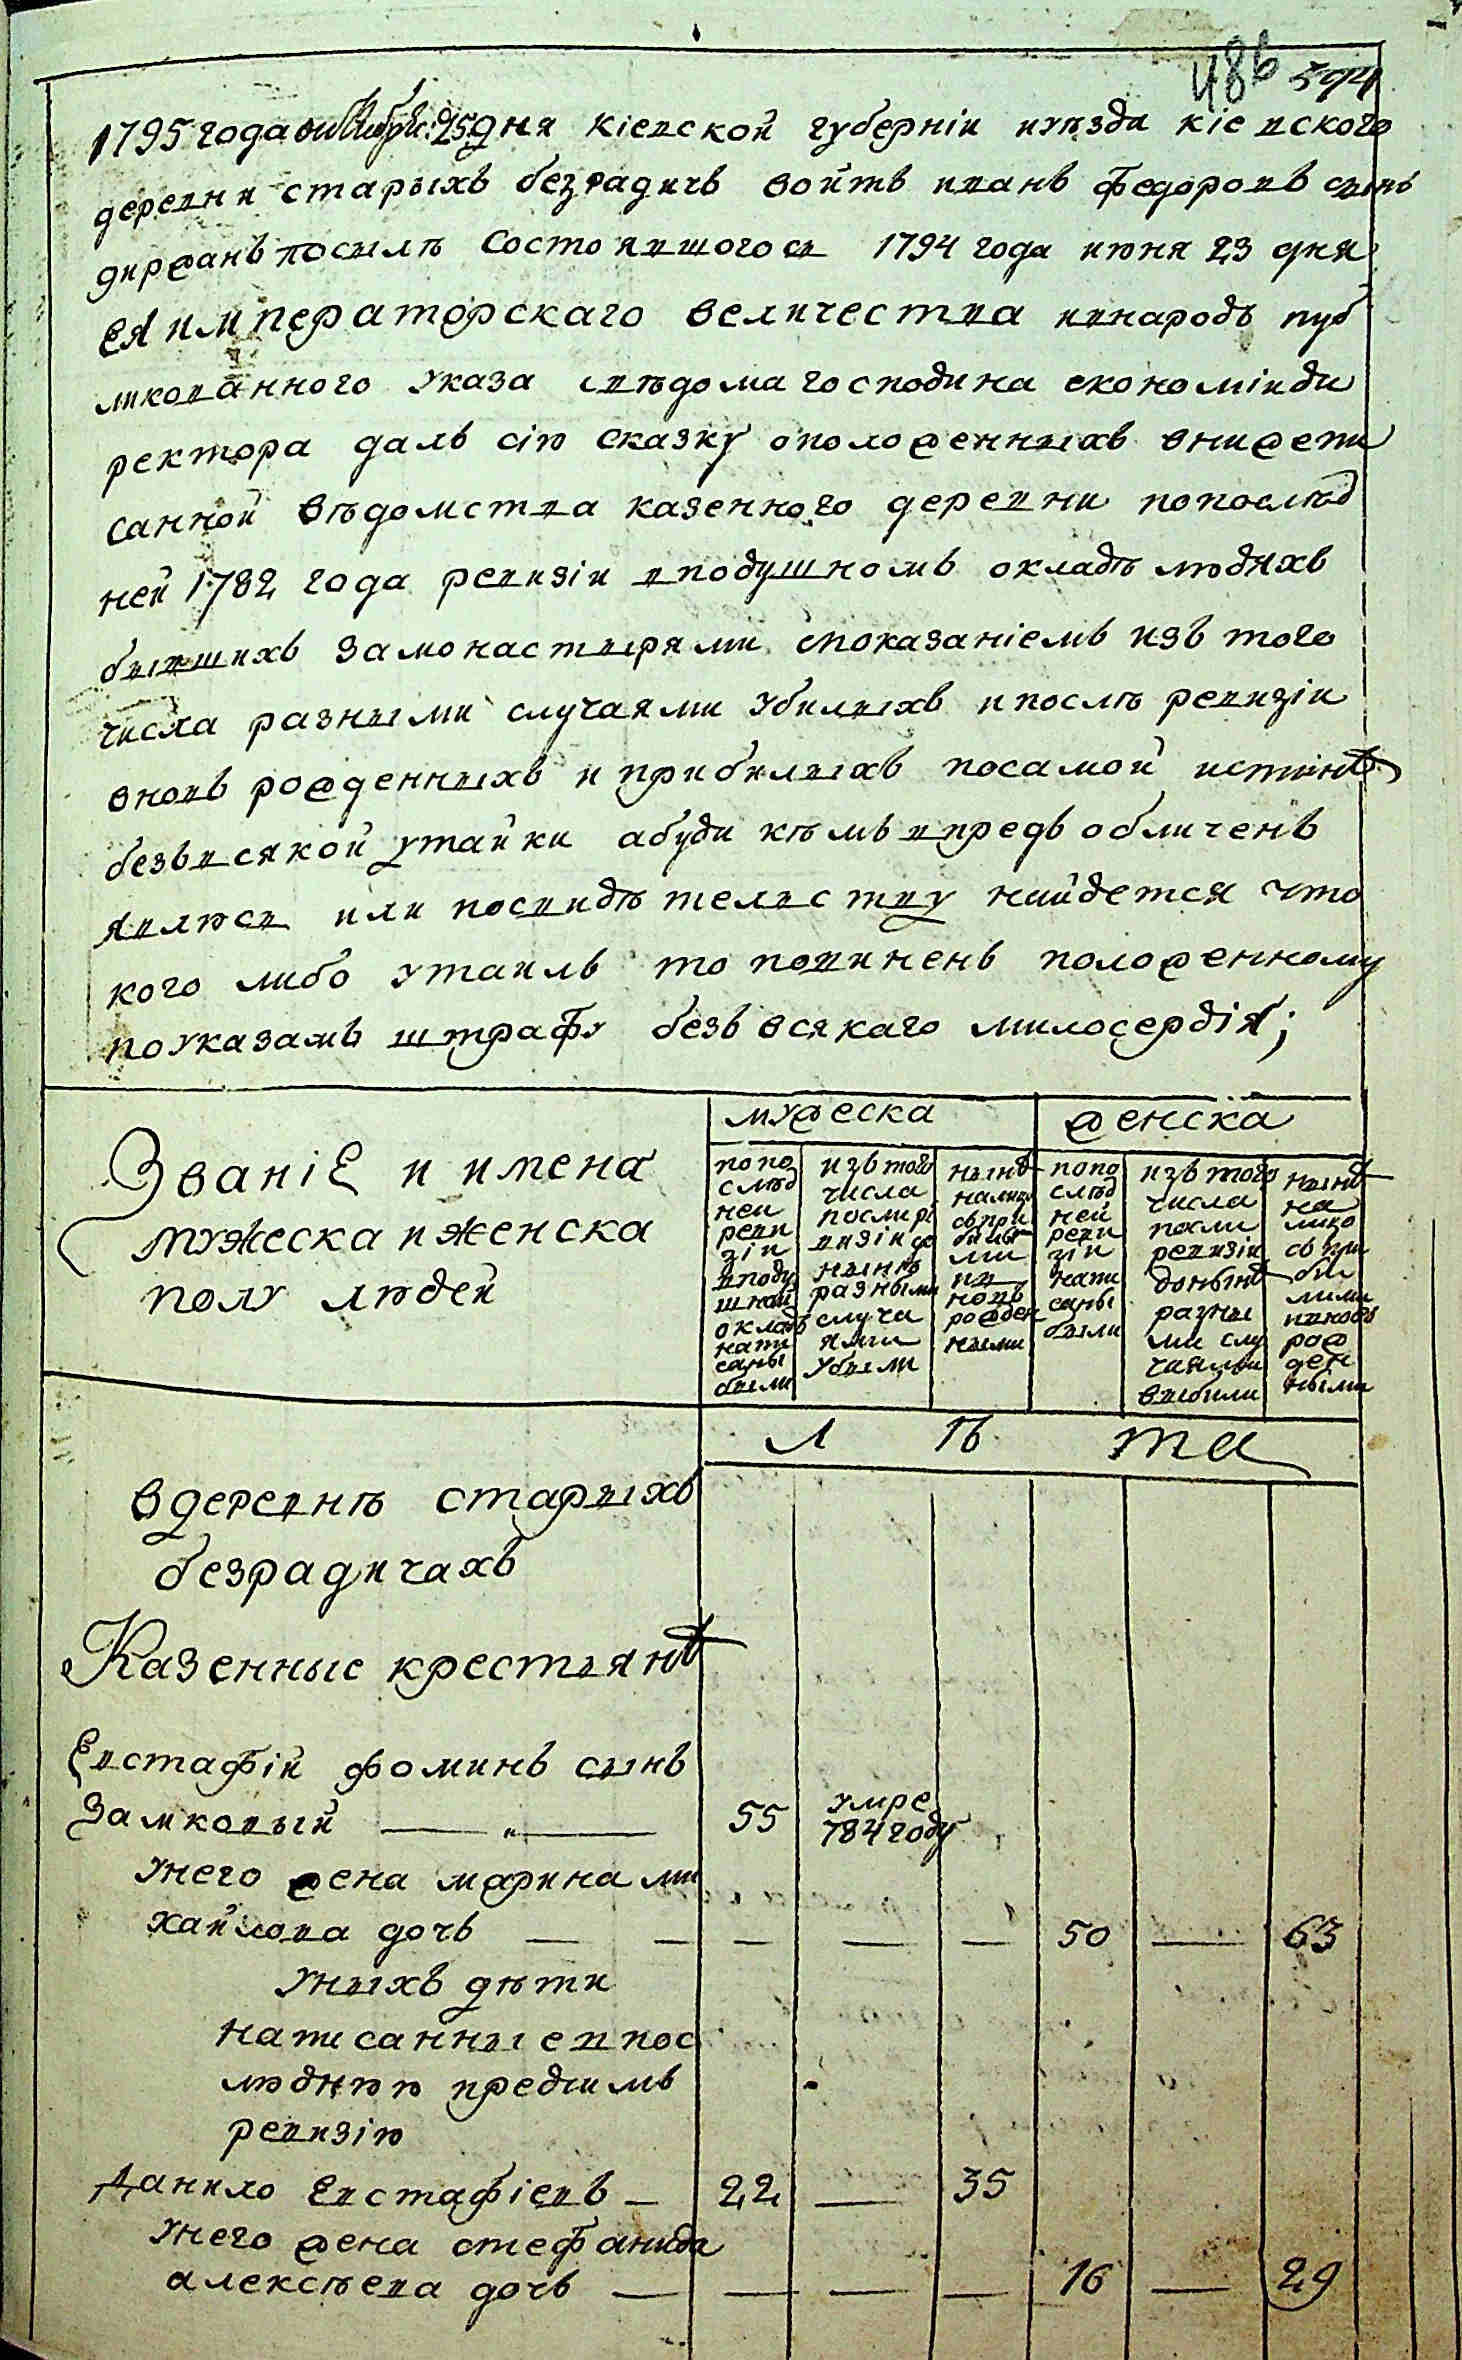 486 594
1795 года октября 25 дня кіевской губерніи иуѣзда кіевского
деревни старыхъ безрадичъ войтъ иванъ федоровъ сынъ
посилѣ состоявшогося 1794 года июня 23 дня
ея императорскаго величества ивнародъ пуб
ликованного указа сведома господина економіиди
ректора далъ сію сказку оположенныхъ внижепи
санной вѣдомства казенного деревни попослѣд
ней 1782 года ревизіи вподушномъ окладѣ людяхъ
бывшихъ замонастырями споказаніемъ изъ того
числа разными случаями убилыхъ ипослѣ ревизіи
вновь рожденныхъ и прибилыхъ посамой истинѣ
безъвсякой утайки абуди кѣмъ впредъ обличенъ
явлюся или посвидѣтельству найдется что
кого либо утаилъ то повиненъ положенному
поуказамъ штрафу безъ всякаго милосердія;
мужеска женска
Званіе и имена
мужеска и женска
полу людей
попо
слѣд
ней
реви
зіи
вподу
шной
окладъ
напи
саны
были
изъ того
числа
посли ре
визіи до
нынѣ
разными
случа
ями
убыли
нынѣ
налицо
съпри
билы
ми
ив
новь
рожден
ными
попо
слѣд
ней
реви
зіи
напи
саны
были
изъ того
числа
посли
ревизіи
донынѣ
разны
ми слу
чаями
вибили
нынѣ
на
лицо
съ при
би
лими
ивновь
рож
ден
ными
л ѣ та
вдеревнѣ старыхъ
безрадичахъ
Казенные крестьянѣ
Евстафій фоминъ сынъ
Замковый — „ — 55 умре
784 году
унего жена марина ми
хайлова дочь — — — — — 50 — 63
уныхъ дѣти
написанные впос
люднюю предъимъ
ревизію
данило Евстафіевъ — 22 — 35
унего жена стефанида
алексѣева дочь — — — — 16 — 29